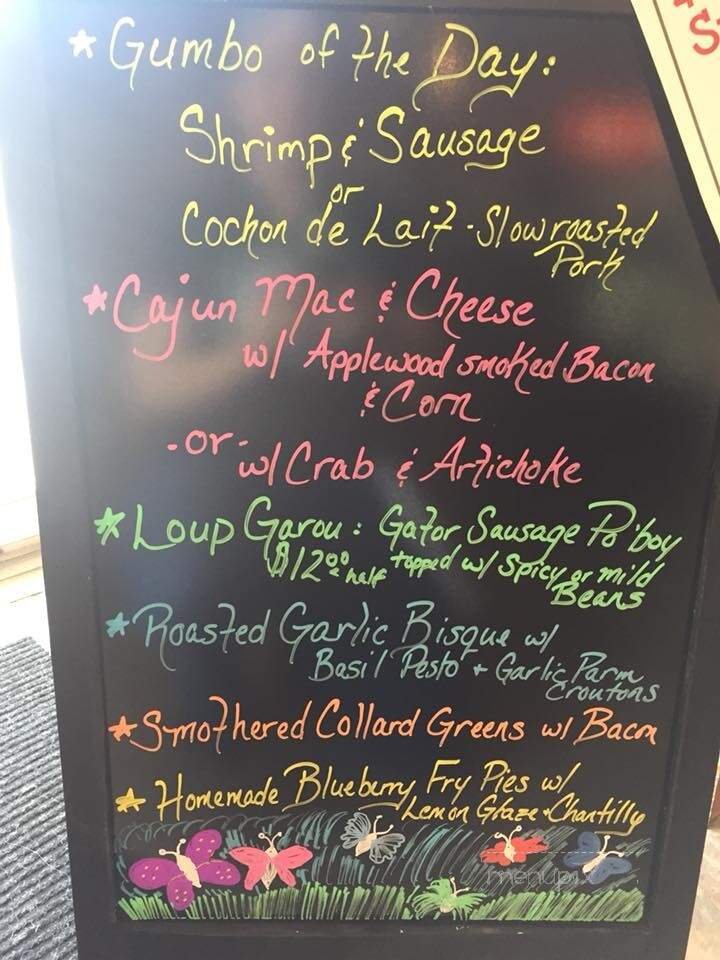 * Gumbo of the Day:
Shrimp & Sausage
or
Cochon de Lait - Slow roasted
Pork
* Cajun Mac & Cheese
w/ Applewood smoked Bacon
& Corn
- or -
w/ Crab & Artichoke
* Loup Garou: Gator Sausage Po'boy
$12.00 half topped w/ Spicy or mild
Beans
* Roasted Garlic Bisque w/
Basil Pesto + Garlic Parm
Croutons
* Smothered Collard Greens w/ Bacon
* Homemade Blueberry Fry Pies w/
Lemon Glaze + Chantilly
menupix